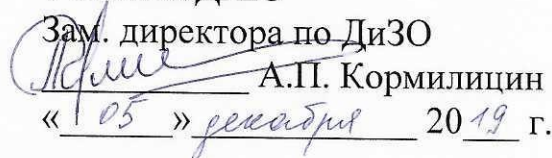 Зам. директора по ДиЗО
А.П. Кормилицин
«05» декабря 2019 г.